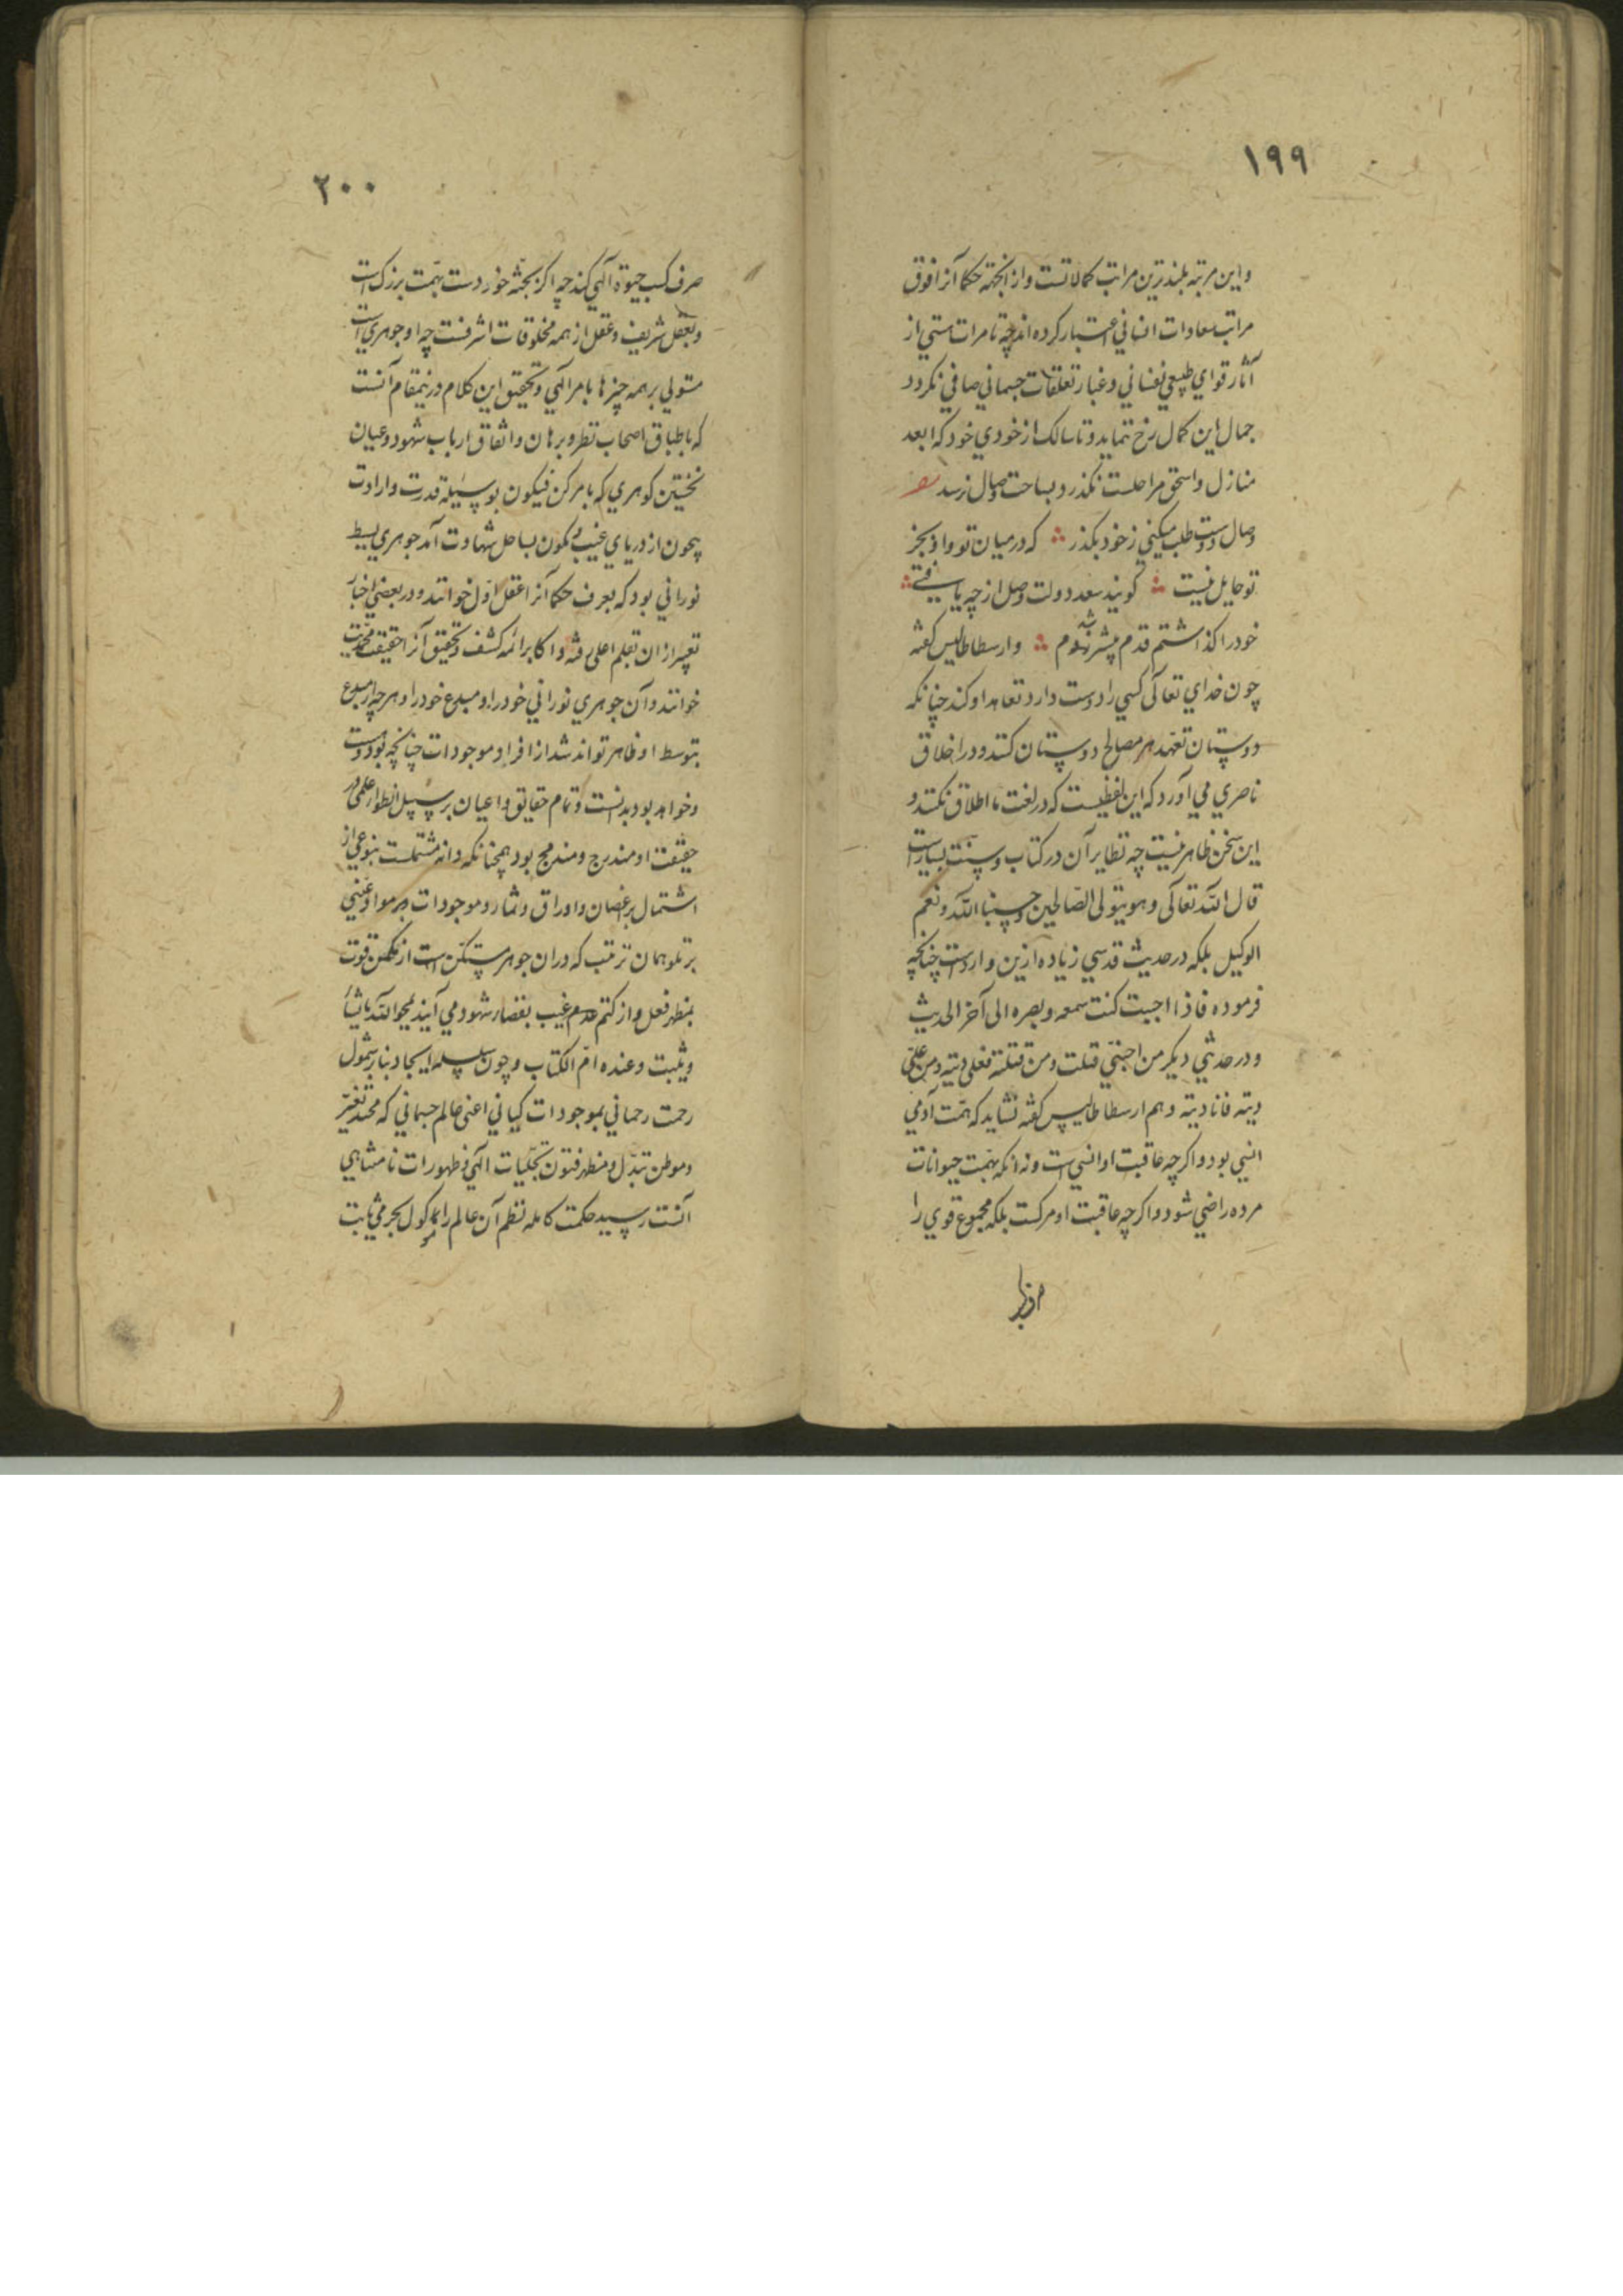 ١٩٩
واین مرتبه بلندترین مراتب کمالاتست وازانجهة حکما آنرا فوق
مراتب سعادات انسانی اعتبار کرده اند چه تا مرات هستی از
آثار قوای طبیعی نفسانی و غبار تعلقات جسمانی صافی نکردد
جمال این کمال رخ ننماید و تا سالک از خودی خود که ابعد
منازل واسحق مراحلست نکذرد بساحت وصال نرسد
وصال دوست طلب میکنی زخود بکذر که درمیان تو واو بجز
تو حایل نیست کویند سعد دولت وصل از چه یافتی
خودرا کذاشتم قدم پیشتر شدم وارسطاطالیس کفته
چون خدای تعالی کسی را دوست دارد تعاهد او کند چنانکه
دوستان تعهد مصالح دوستان کنند ودر اخلاق
ناصری می آورد که این لفظیست که در لغت ما اطلاق نکنند و
این سخن ظاهر نیست چه نظایر آن در کتاب وسنت بسیار است
قال الله تعالی وهو یتولی الصالحین وحسبنا الله ونعم
الوکیل بلکه درحدیث قدسی زیاده ازین وارداست چنانچه
فرموده فاذا احببت کنت سمعه وبصره الی آخر الحدیث
ودر حدیثی دیکر من احبنی قتلت ومن قتلته فعلی دیته ومن علیّ
دیته فانا دیته وهم ارسطاطالیس کفته نشاید که همت آدمی
انسی بود واکرچه عاقبت او انسی است ونه انکه بهمت حیوانات
مرده راضی شود واکرچه عاقبت او مرکست بلکه مجموع قوی را
٢٠٠
صرف کسب حیوة الهی کند چه اکر بجثه خوردست بهمت بزرک است
وبعقل شریف وعقل از همه مخلوقات اشرفست چه او جوهری است
مستولی برهمه چیزها بامر الهی وتحقیق این کلام درینمقام آنست
که باطباق اصحاب نظر وبرهان واتفاق ارباب شهود وعیان
نخستین کوهری که بامر کن فیکون بوسیلهٔ قدرت وارادت
بیچون از دریای غیب مکنون بساحل شهادت آمد جوهری بسیط
نورانی بود که بعرف حکما آنرا عقل اول خوانند ودر بعضی اخبار
تعبیر ازان بقلم اعلی رفته واکابر ائمه کشف وتحقیق آنرا حقیقت محمدیت
خوانند وآن جوهری نورانی خودرا ومبدع خودرا وهرچه از مبدع
بتوسط او ظاهر تواند شد از افراد موجودات چنانچه بود وهست
وخواهد بود بدانست وتمام حقایق واعیان برسبیل انطوار علمی در
حقیقت او مندرج ومندمج بود همچنانکه دانه مشتملست بنوعی از
اشتمال بر اغصان واوراق وثمار وموجودات
برتلو همان ترتیب که دران جوهر مستکن است از مکمن قوت
بمظهر فعل واز کتم عدم غیب بفضاء شهود می آیند یمحو الله ما یشاء
ویثبت وعنده ام الکتاب وچون سلسله ایجاد بنابر شمول
رحمت رحمانی بموجودات کیانی اعنی عالم جسمانی که محتد تغیر
وموطن تبدل ومظهر فنون تجلیات الهی وظهورات نامتناهی
آنست رسید حکمت کامله نظم آن عالم را بامر ثابت